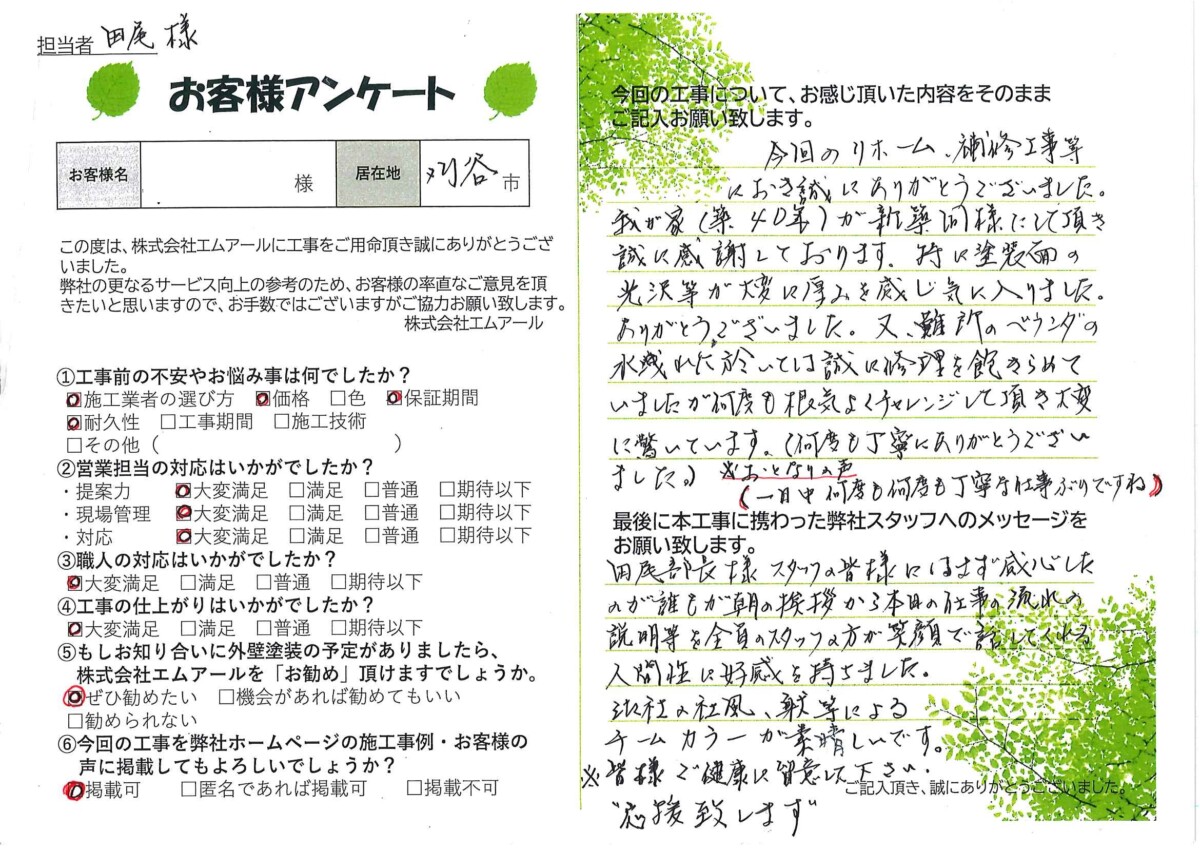 担当者 田尾 様
お客様アンケート
お客様名 様 居在地 刈谷 市
この度は、株式会社エムアールに工事をご用命頂き誠にありがとうござ
いました。
弊社の更なるサービス向上の参考のため、お客様の率直なご意見を頂
きたいと思いますので、お手数ではございますがご協力お願い致します。
株式会社エムアール
①工事前の不安やお悩み事は何でしたか?
□施工業者の選び方 □価格 □色 □保証期間
□耐久性 □工事期間 □施工技術
□その他 ( )
②営業担当の対応はいかがでしたか?
・提案力 □大変満足 □満足 □普通 □期待以下
・現場管理 □大変満足 □満足 □普通 □期待以下
・対応 □大変満足 □満足 □普通 □期待以下
③職人の対応はいかがでしたか?
□大変満足 □満足 □普通 □期待以下
④工事の仕上がりはいかがでしたか?
□大変満足 □満足 □普通 □期待以下
⑤もしお知り合いに外壁塗装の予定がありましたら、
株式会社エムアールを「お勧め」頂けますでしょうか。
□ぜひ勧めたい □機会があれば勧めてもいい
□勧められない
⑥今回の工事を弊社ホームページの施工事例・お客様の
声に掲載してもよろしいでしょうか?
□掲載可 □匿名であれば掲載可 □掲載不可
今回の工事について、お感じ頂いた内容をそのまま
ご記入お願い致します。
今回のリホーム、補修工事等
におき誠にありがとうございました。
我が家(築40年)が新築同様にして頂き
誠に感謝しております。特に塗装面の
光沢等が大変に厚みを感じ気に入りました。
ありがとうございました。又、難所のベランダの
水残れに於いては誠に修理を飽きらめて
いましたが何度も根気よくチャレンジして頂き大変
に驚いています。(何度も丁寧にありがとうござい
ました。) ※おとなりの声
(一日中何度も何度も丁寧な仕事ぶりですね)
最後に本工事に携わった弊社スタッフへのメッセージを
お願い致します。
田尾部長様 スタッフの皆様にはまず感心した
のが誰もが朝の挨拶から本日の仕事の流れの
説明等を全員のスタッフの方が笑顔で話してくれる
人間性に好感を持ちました。
社の社風、等による
チームカラーが素晴しいです。
※皆様ご健康に留意して下さい.
"応援致します"
ご記入頂き、誠にありがとうございました。